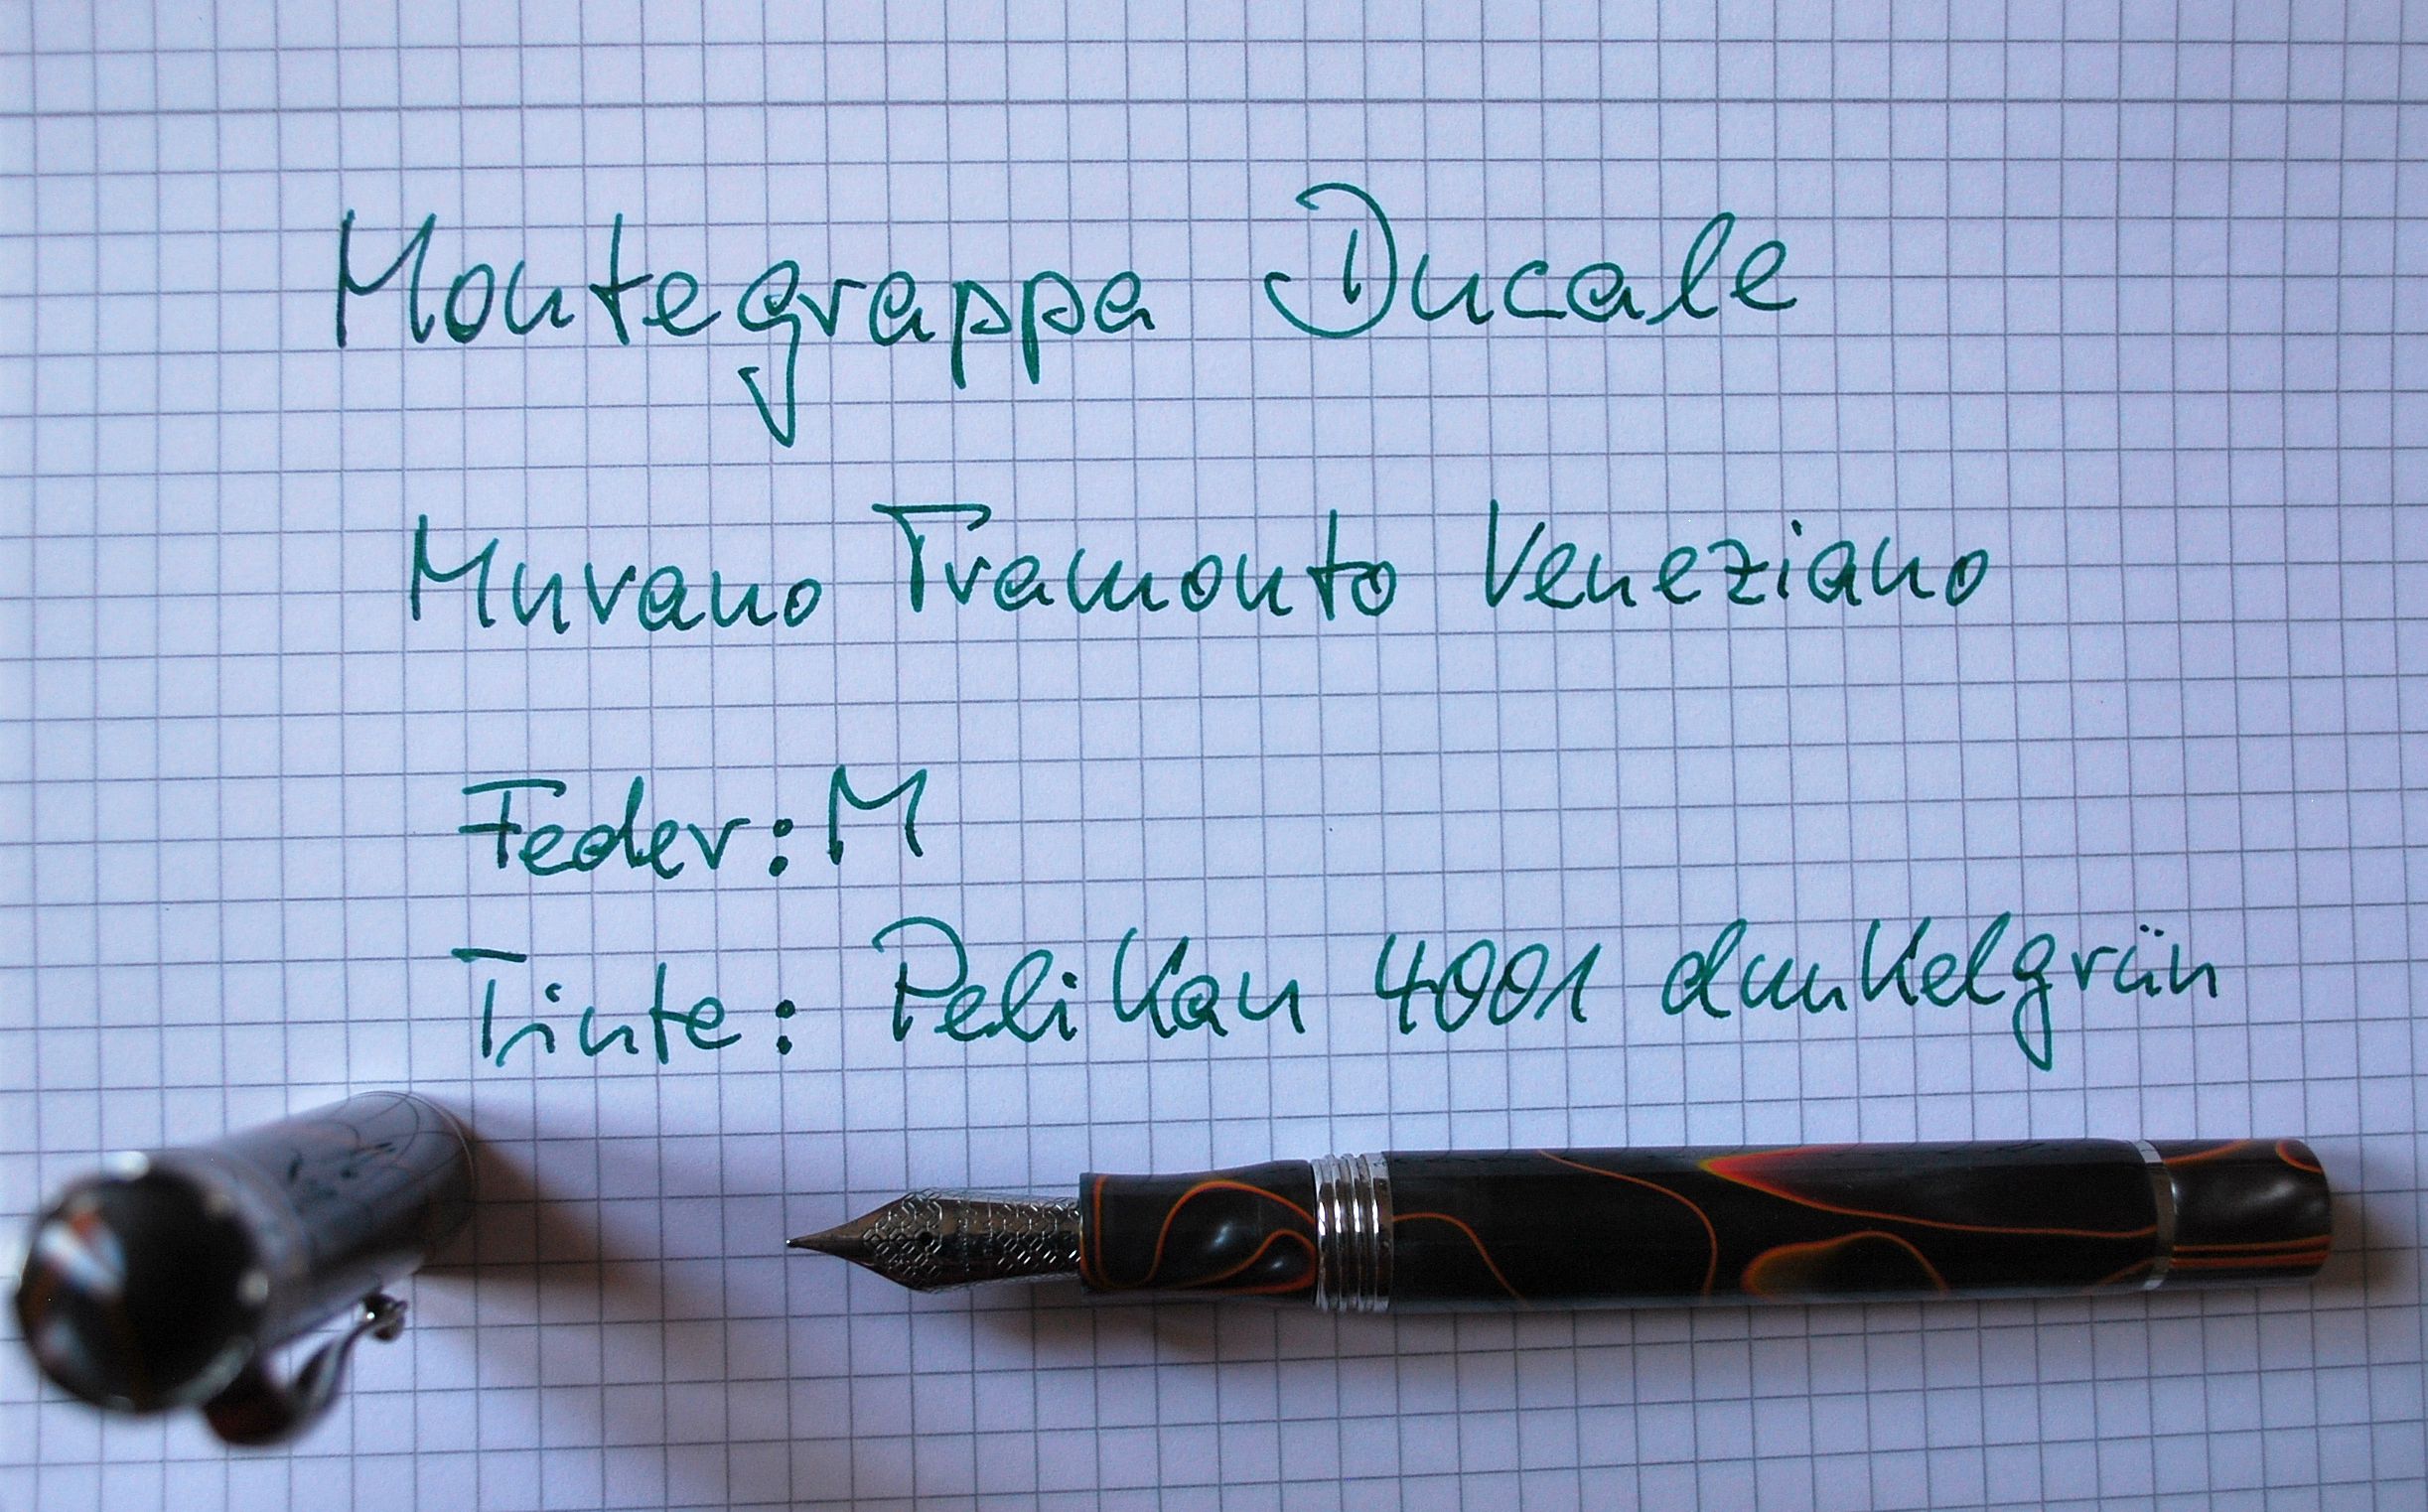 Montegrappa Ducale
Murano Tramonto Veneziano
Feder: M
Tinte: Pelikan 4001 dunkelgrün